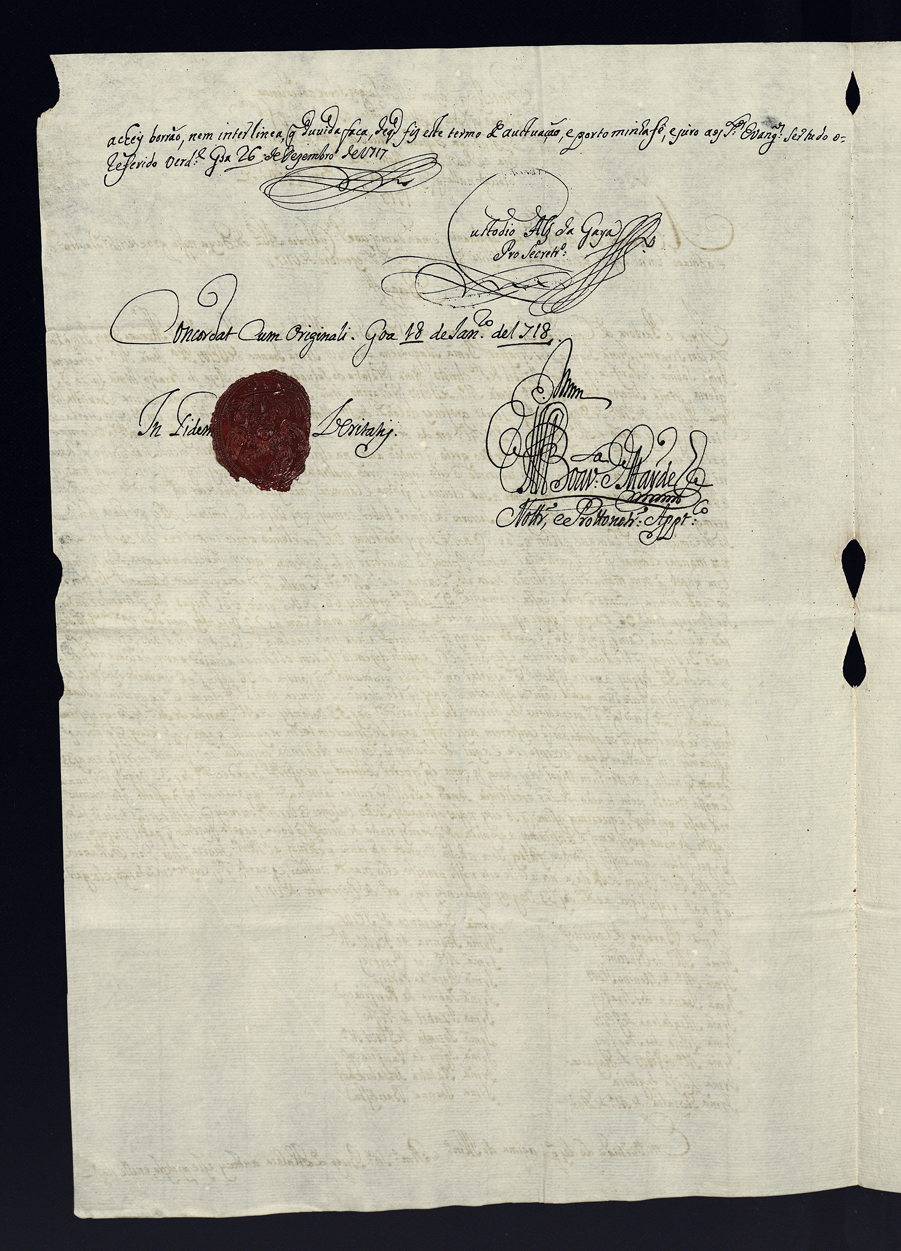 achey borrão, nem interlinea, q̃ duuida faça, deq̃ fiz este termo de auctuação, e porto minha fé, e juro aos S.tos Evang.os ser tudo o-
referido verd.e Goa 26 de Dezembro de 1717
Custodio Alz da Gaya
Pro Secretr.o:
Concordat Cum Originali. Goa 18 de Jan.ro de 1718.
In Fidem Veritatis.
Boav. de Atayde
Nottr.o, e Prottonotr.o: App.co